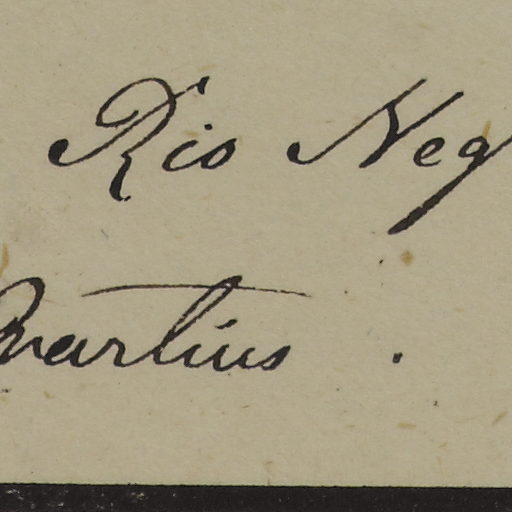 Rio Neg
Martius .